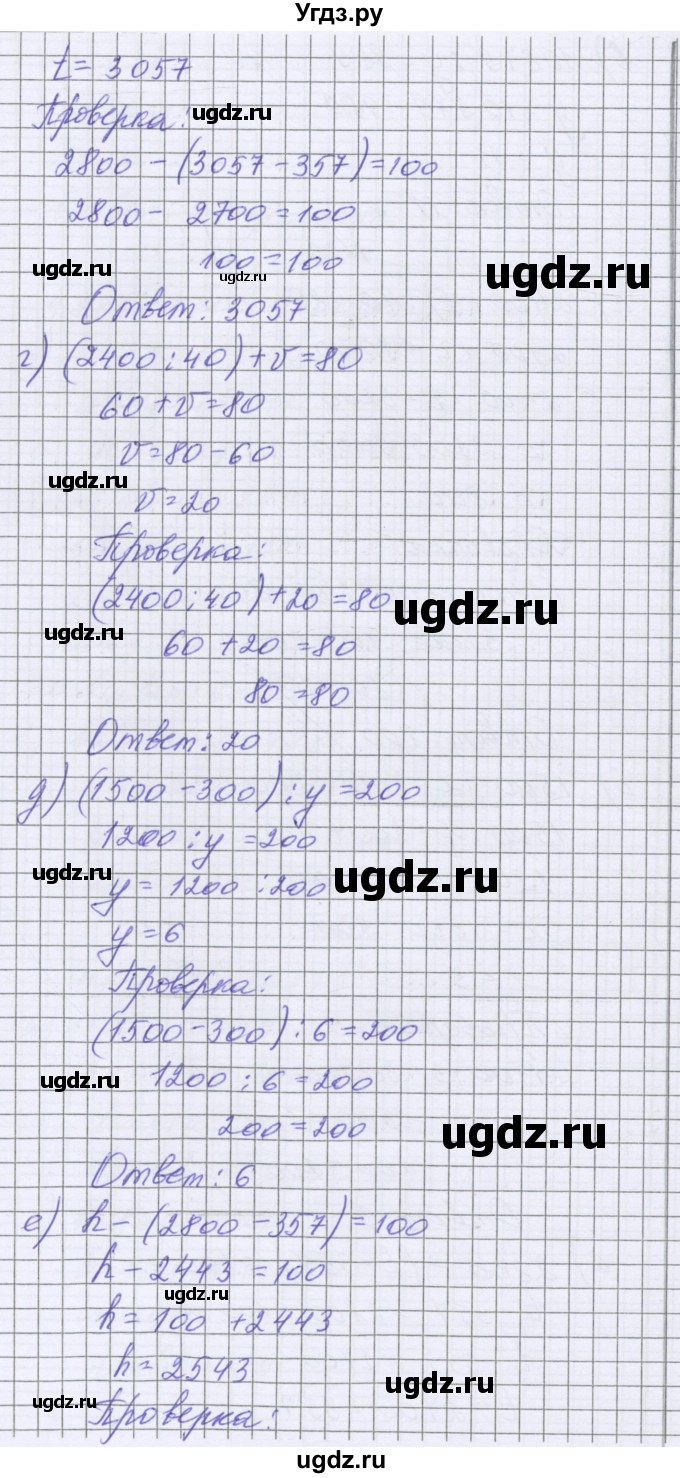 Угдз.ру
t = 3057
Проверка: ugdz.ru
2800 - (3057 - 357) = 100
2800 - 2700 = 100
ugdz.ru 100 = 100 ugdz.ru
ugdz.ru
Ответ: 3057
г) (2400 : 40) + v = 80
60 + v = 80
v = 80 - 60
ugdz.ru
v = 20
Проверка:
(2400 : 40) + 20 = 80 ugdz.ru
ugdz.ru 60 + 20 = 80
80 = 80
Ответ: 20
д) (1500 - 300) : y = 200
1200 : y = 200
ugdz.ru y = 1200 : 200 ugdz.ru
y = 6
Проверка:
(1500 - 300) : 6 = 200
ugdz.ru 1200 : 6 = 200
200 = 200 ugdz.ru
Ответ: 6
е) h - (2800 - 357) = 100
h - 2443 = 100
ugdz.ru
h = 100 + 2443
h = 2543 ugdz.ru
ugdz.ru Проверка:
ugdz.ru